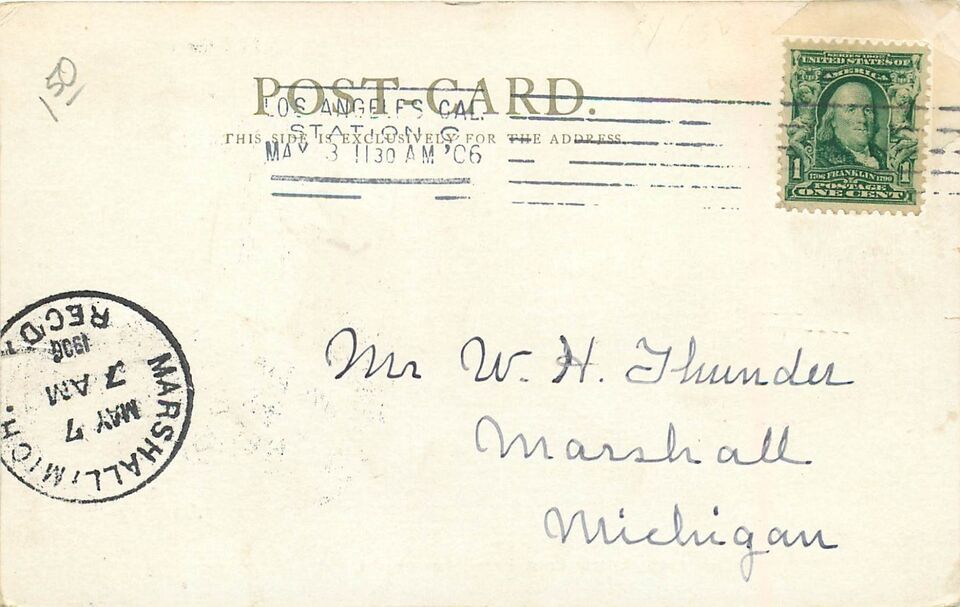 1 50
POST CARD.
THIS SIDE IS EXCLUSIVELY FOR THE ADDRESS.
LOS ANGELES CAL.
STATION C
MAY 3 11 30 AM '06
SERIES 1902
UNITED STATES OF
AMERICA
1706 FRANKLIN 1790
POSTAGE
1 ONE CENT 1
MARSHALL, MICH.
MAY 7
7 AM
1906
REC'D.
Mr W. H. Thunder
Marshall
Michigan